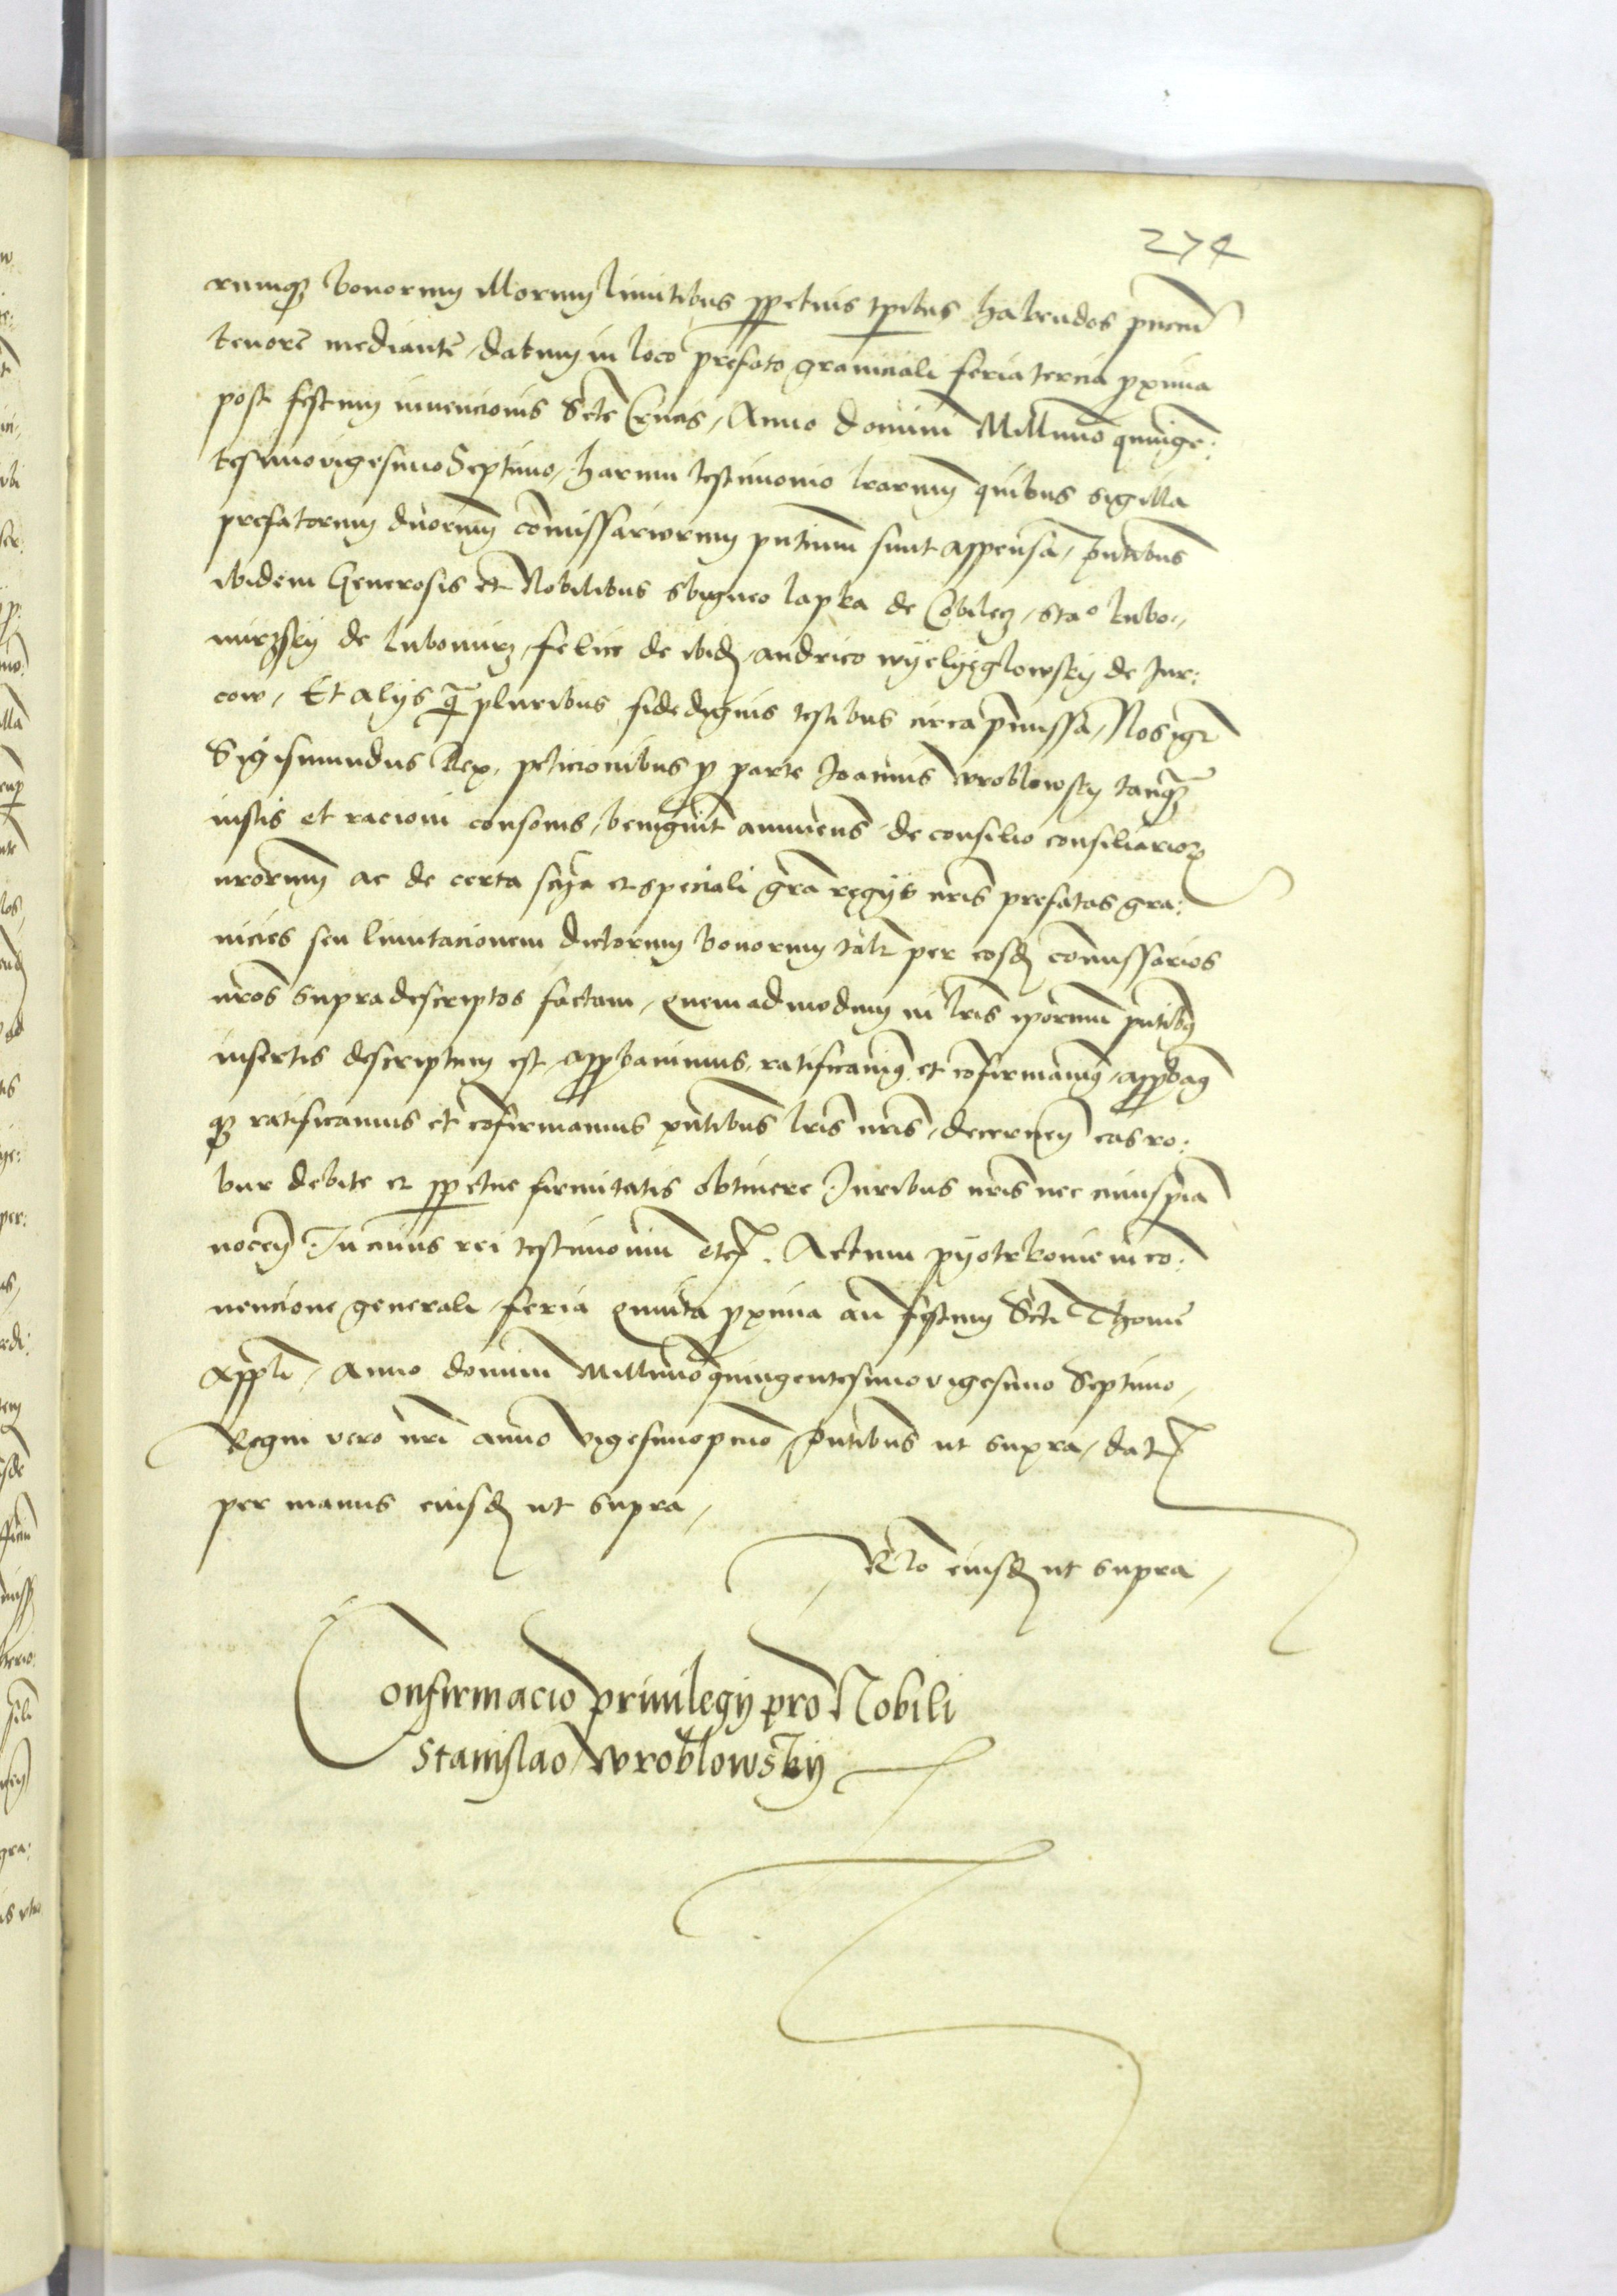 274
rumq3 bonorum illorum limitibus ppetuis tpibus habendos pncm
tenore mediante, datum in loco prefato graniciali feria tercia pxima
post festum invencionis Scte Crucis, Anno domini Millimo quinge:
tesimovigesimo Septimo, harum testimonio lrarum quibus sigilla
prefatorum duorum comissariorum pntium sunt appensa, pntibus
ibidem Generosis et Nobilibus Sbigneo lapka de Cobilecz, stao lubo,,
mirzsky de lubomirz, felice de ibid, andrico wyelygglowsky de Jur:
cow, Et alijs q pluribus fidedignis testibus circa pmissa, Nos igr
Sigismundus Rex, peticionibus p parte Joannis wroblowsky tanq3
iustis et racioni consonis, benignit annuens de consilio consiliario
nrorum ac de certa scia et speciali gra regijs nris prefatas gra:
nicies seu limitacionem dictorum bonorum talr per eosd comissarios
nros supradescriptos factam, quemadmodum in lris ipsorum pntib
insertis descriptum est, appbavimus, ratificavim et cofirmavim, appbam
q3 ratificamus et cofirmamus pntibus lris nris, decernen eas ro:
bur debite et ppetue firmitatis obtinere Juribus nris nec cuiuspia
nocen. In cuius rei testimonium etc. Actum pyotrkovie in co:
nencione generali, feria quinta pxima an festum Scti Thome
Appli, Anno domini Millimoquingentesimovigesimo Septimo,
Regni vero nri anno vigesimopmo, pntibus ut supra, dat
per manus eiusd ut supra,
Rlo eiusd ut supra,
Confirmacio privilegy pro Nobili
Stanislao wroblowsky